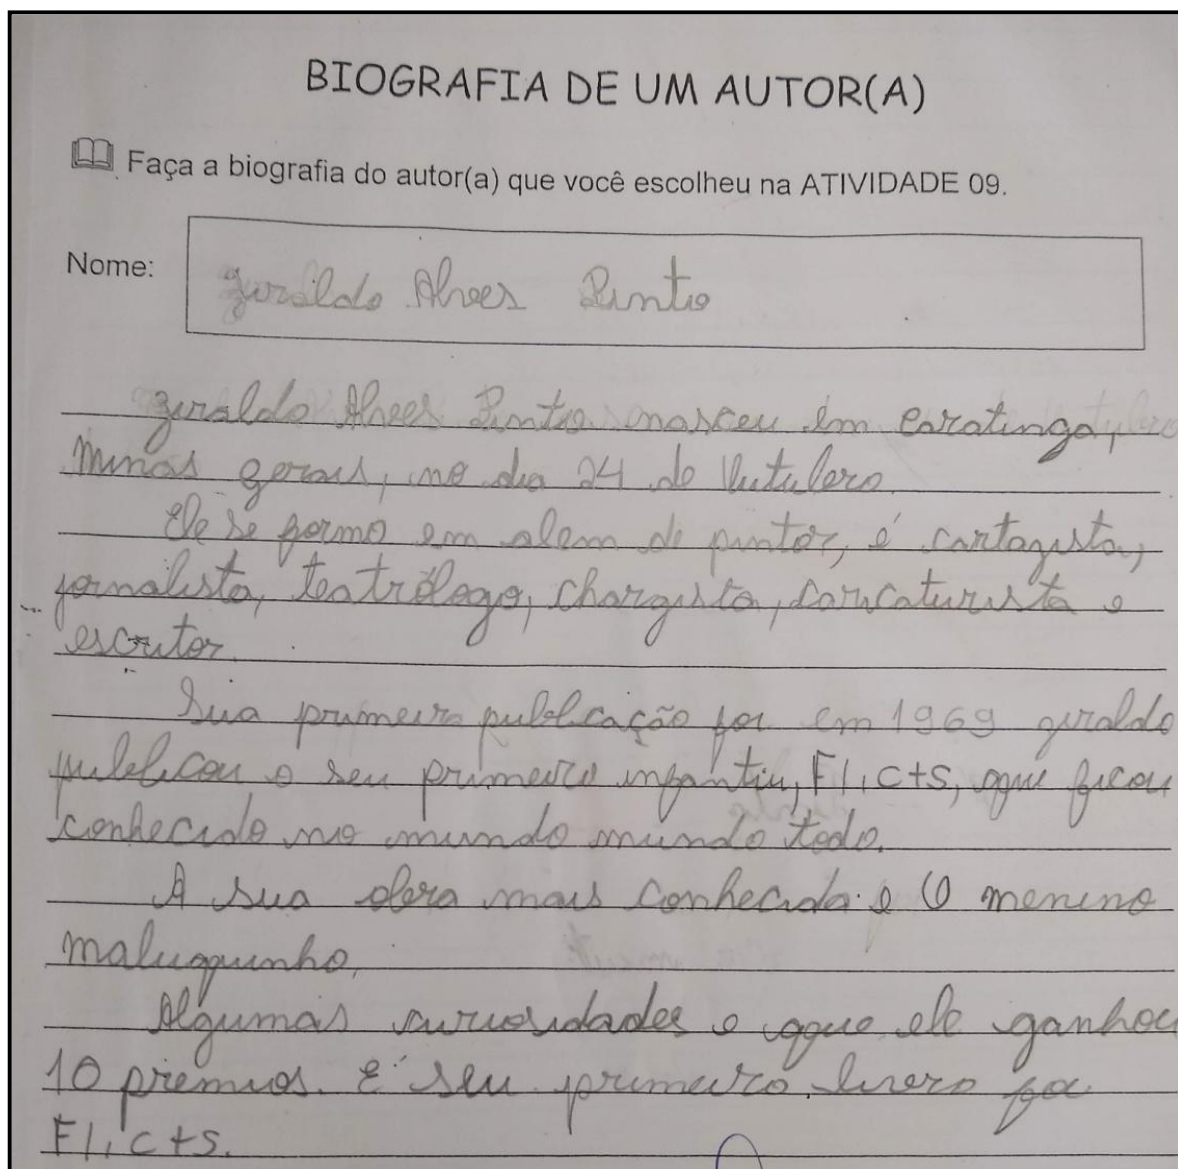 BIOGRAFIA DE UM AUTOR(A)
Faça a biografia do autor(a) que você escolheu na ATIVIDADE 09.
Nome:
Ziraldo Alves Pinto
Ziraldo Alves Pinto nasceu em caratinga,
Minas gerais, no dia 24 de Outubro
Ele se formo em alem de pintor, é cartagista,
jornalista, teatrólogo, chargista, caricaturista e
escritor.
Sua primeira publicação foi em 1969 ziraldo
publicou o seu primeiro infantiu, Flicts, que ficou
conhecido no mundo mundo todo.
A sua obra mais conhecida é O menino
maluquinho.
Algumas curiosidades e que ele ganhou
10 premios. E seu primeiro livro foi
Flicts.